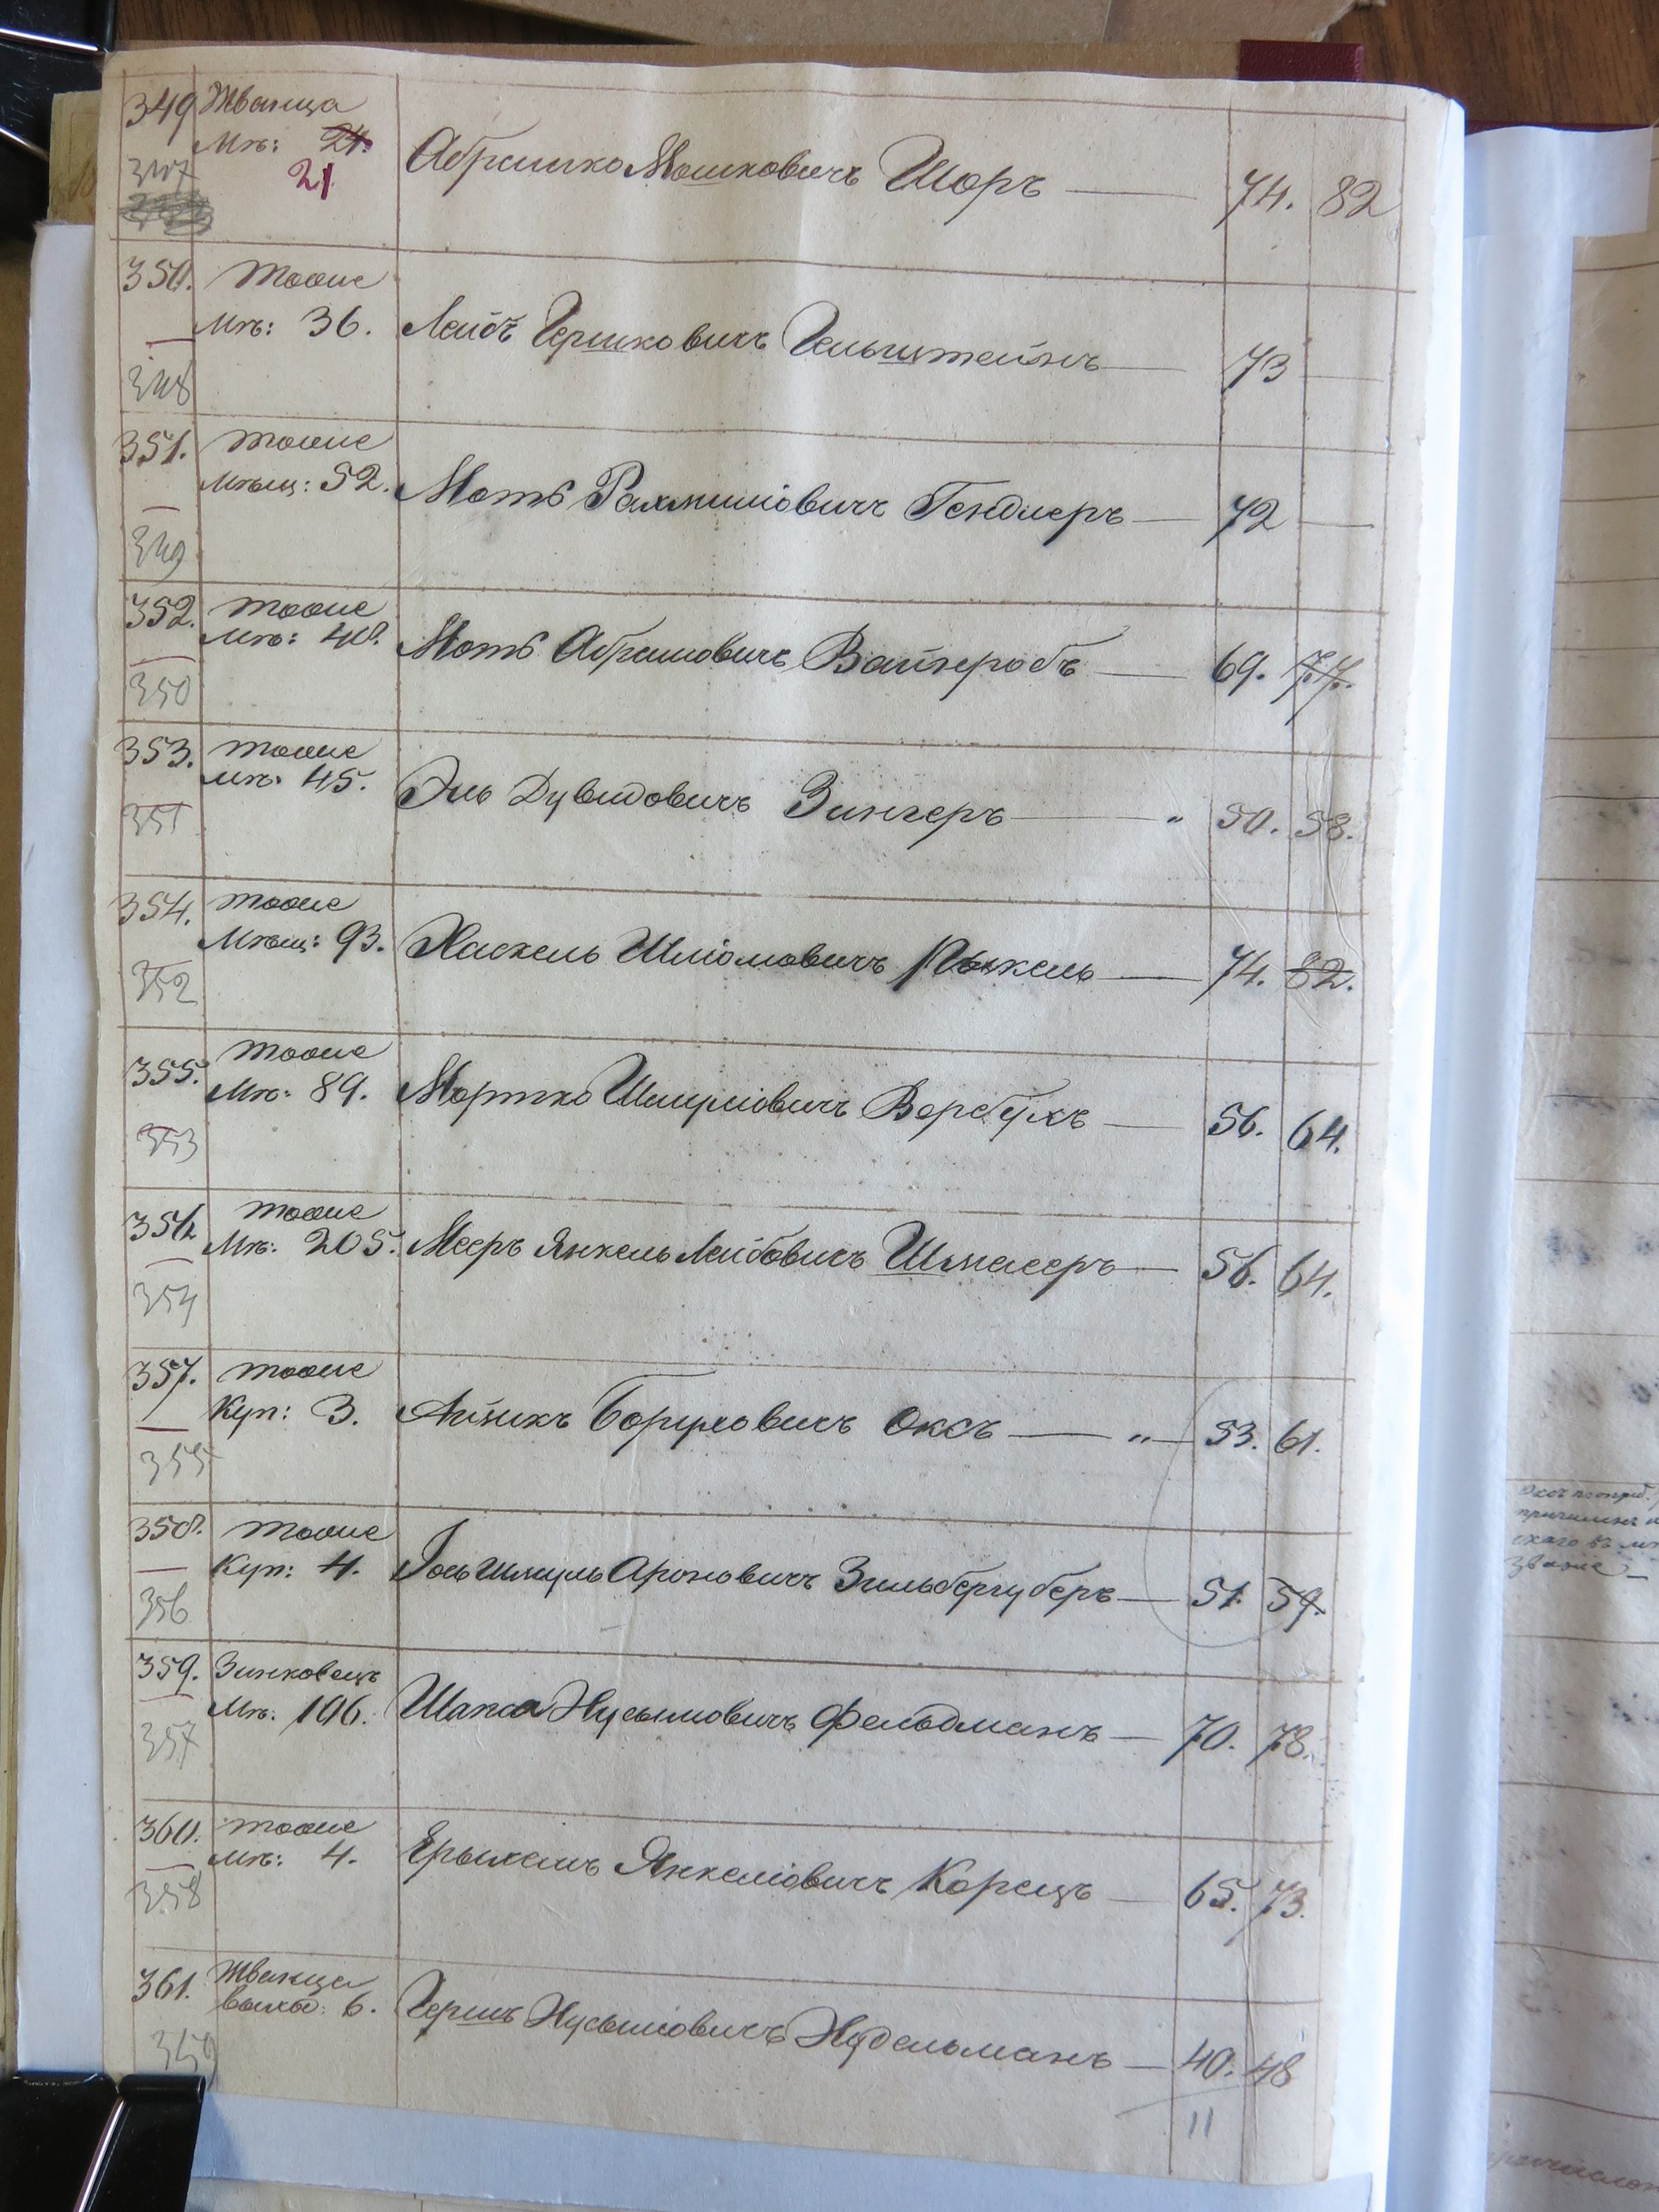 349 Жванца
Мѣ: 24.
347 21
Абрамко Мошковичъ Шоръ — 74. 82
350. тоже
Мѣ: 36. Лейбъ Гершковичъ Гельштейнъ — 73 —
348
351. тоже
Мѣщ: 52. Мотѣ Рахмиліовичъ Гендлеръ — 72 —
349
352. тоже
Мѣ: 40. Мотѣ Абрамовичъ Вайнеробъ — 69. 77.
350
353. тоже
Мѣ: 45. Эль Дувидовичъ Зингеръ — " 50. 58.
351
354. тоже
Мѣщ: 93. Хаскель Шліомовичъ — 74. 82.
352
355. тоже
Мѣ: 89. Мортко Шмуліовичъ Вербухъ — 56. 64.
353
356. тоже
Мѣ: 205. Мееръ Янкель Лейбовичъ Шмалеръ — 56. 64.
354
357. тоже
Куп: 3. Айзикъ Боруховичъ Оксъ — " — 53. 61.
355
358. тоже
Куп: 4. Іось Шмуль Ароновичъ Зильбергуберъ — 51. 59.
356
359. Зинковецъ
Мѣ: 106. Шапса Нусымовичъ Фельдманъ — 70. 78.
357
360. тоже
Мѣ: 4. Ерыхемъ Янкеліовичъ Корецъ — 65. 73.
358
361. Жванца
6. Гершъ Нусымовичъ Нудельманъ — 40. 48
359
11